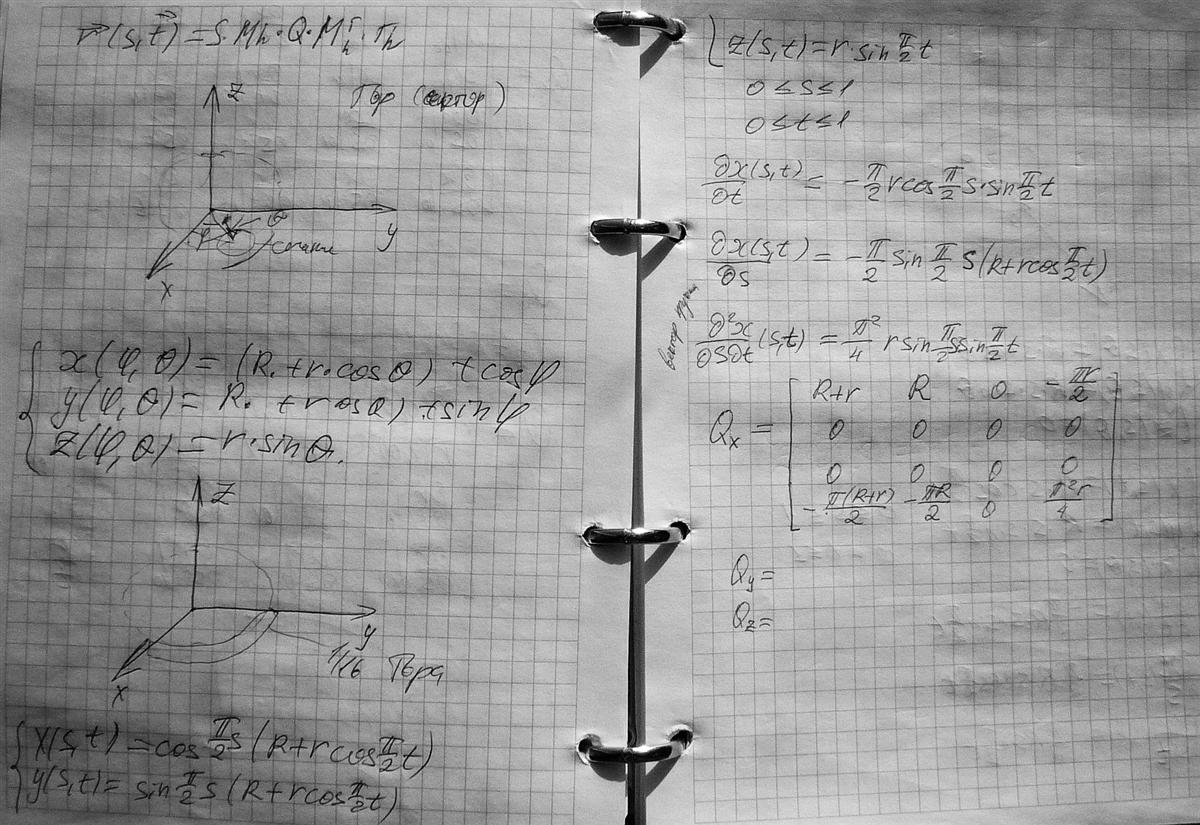 r(s,t) = S·Mh·Q·Mhᵀ·Th
Z
Тор (сектор)
φ θ
y
x
x(φ,θ) = (R.+r·cosθ) + cosφ
y(φ,θ) = R. + rcosθ) + sinφ
z(φ,θ) = r·sinθ.
Z
y
1/16 Тора
x
x(s,t) = cos π/2 s (R+r cos π/2 t)
y(s,t) = sin π/2 s (R+r cos π/2 t)
z(s,t) = r·sin π/2 t
0 ≤ s ≤ 1
0 ≤ t ≤ 1
∂x(s,t)/∂t = - π/2 r cos π/2 s·sin π/2 t
∂x(s,t)/∂s = - π/2 sin π/2 s (R+r cos π/2 t)
вектор
∂²x/∂s∂t (s,t) = π²/4 r sin π/2 s sin π/2 t
R+r R 0 -πr/2
Qx = 0 0 0 0
0 0 0 0
-π(R+r)/2 -πR/2 0 π²r/4
Qy =
Qz =